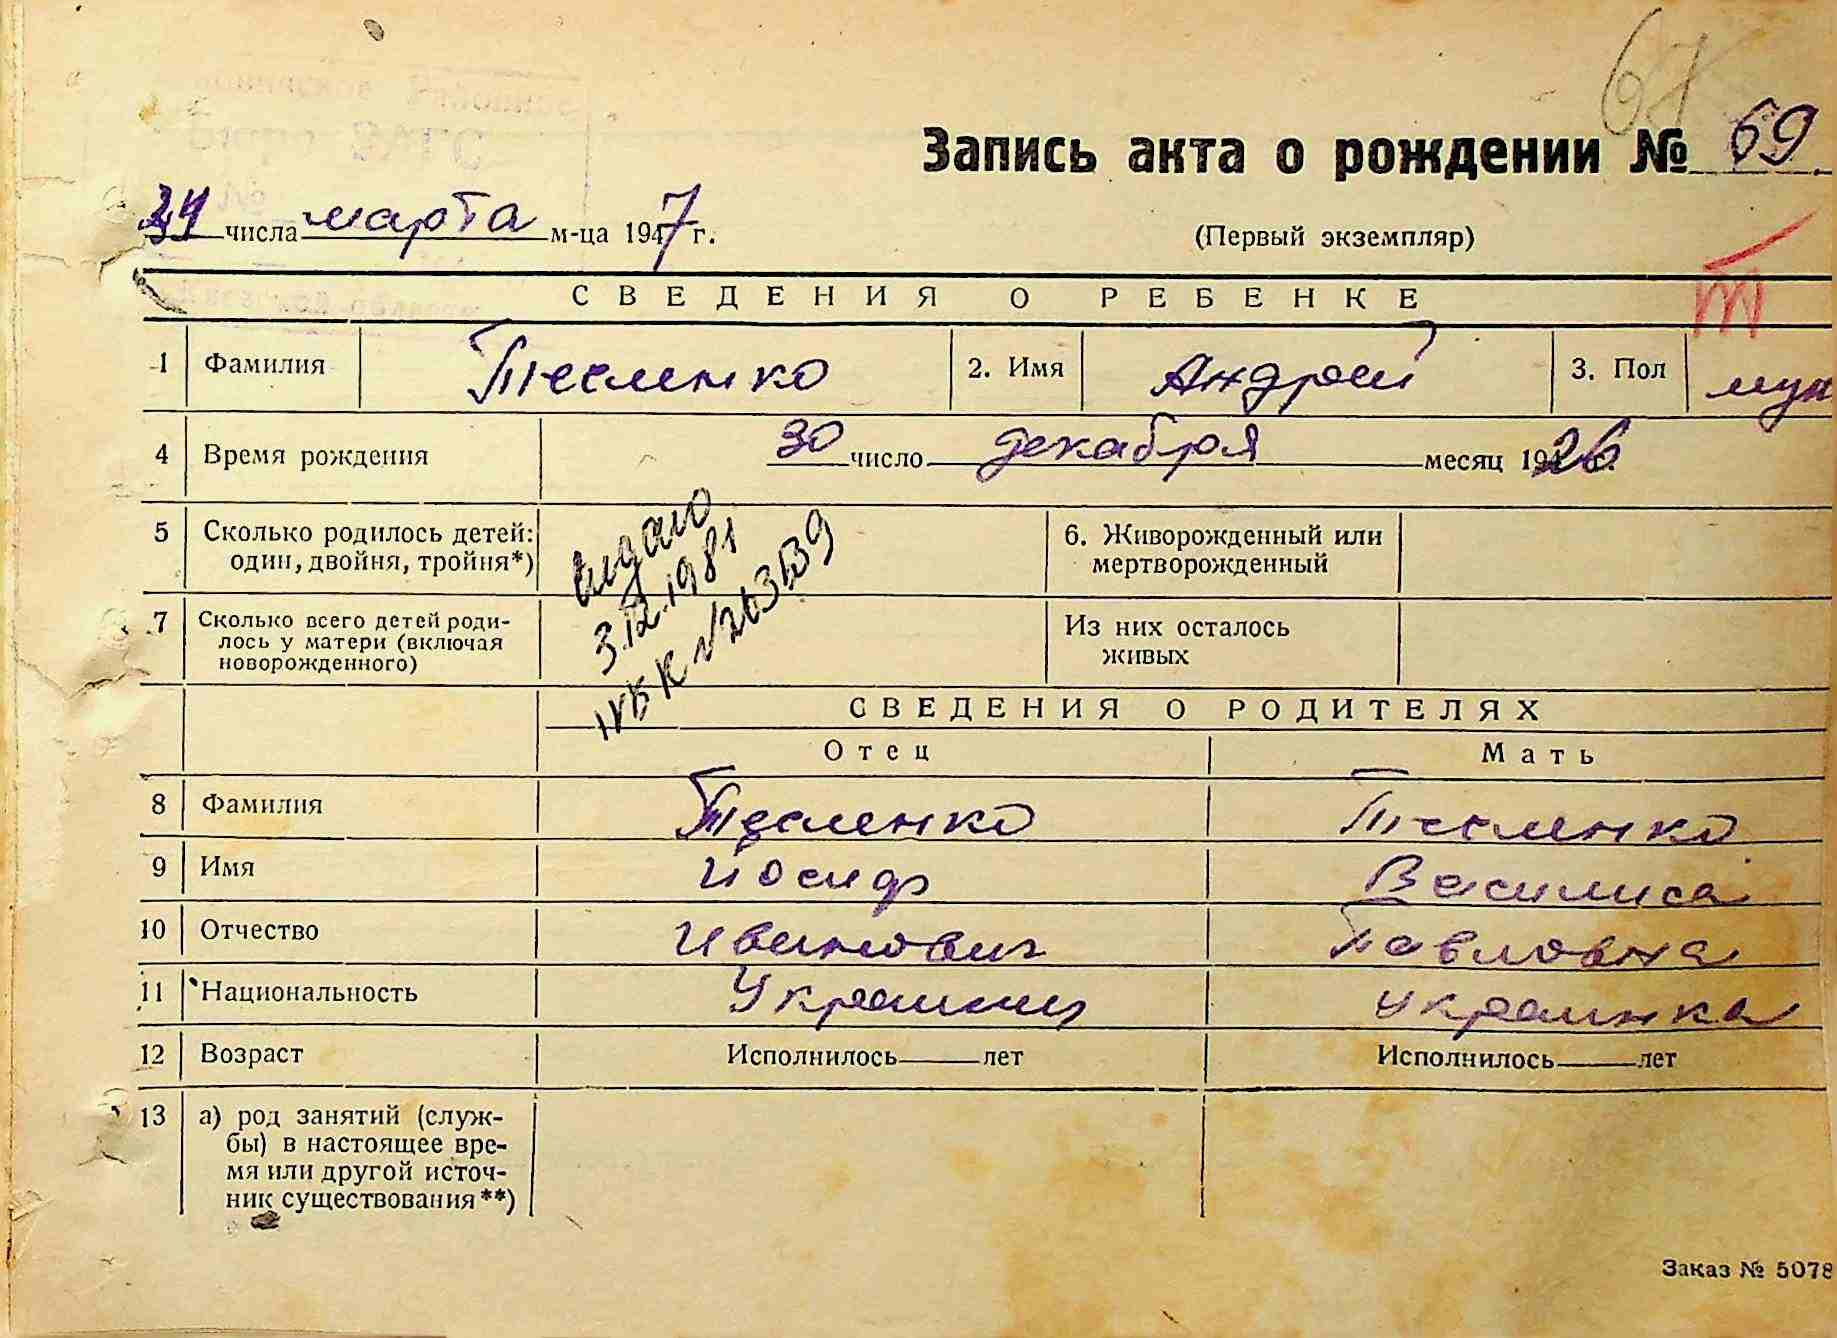 67
Бюро ЗАГС
Запись акта о рождении № 69
24 числа марта м-ца 1947 г.
(Первый экземпляр)
Т
СВЕДЕНИЯ О РЕБЕНКЕ
1 Фамилия Тесленко 2. Имя Андрей 3. Пол муж
4 Время рождения 30 число декабря месяц 1926 г.
5 Сколько родилось детей: один, двойня, тройня*)
6. Живорожденный или мертворожденный
выдано
3.12.1981
7 Сколько всего детей роди-
лось у матери (включая
новорожденного)
Из них осталось
живых
СВЕДЕНИЯ О РОДИТЕЛЯХ
Отец Мать
8 Фамилия Тесленко Тесленко
9 Имя Иосиф Василиса
10 Отчество Иванович Павловна
11 Национальность Украинец Украинка
12 Возраст Исполнилось лет Исполнилось лет
13 а) род занятий (служ-
бы) в настоящее вре-
мя или другой источ-
ник существования**)
Заказ № 5078